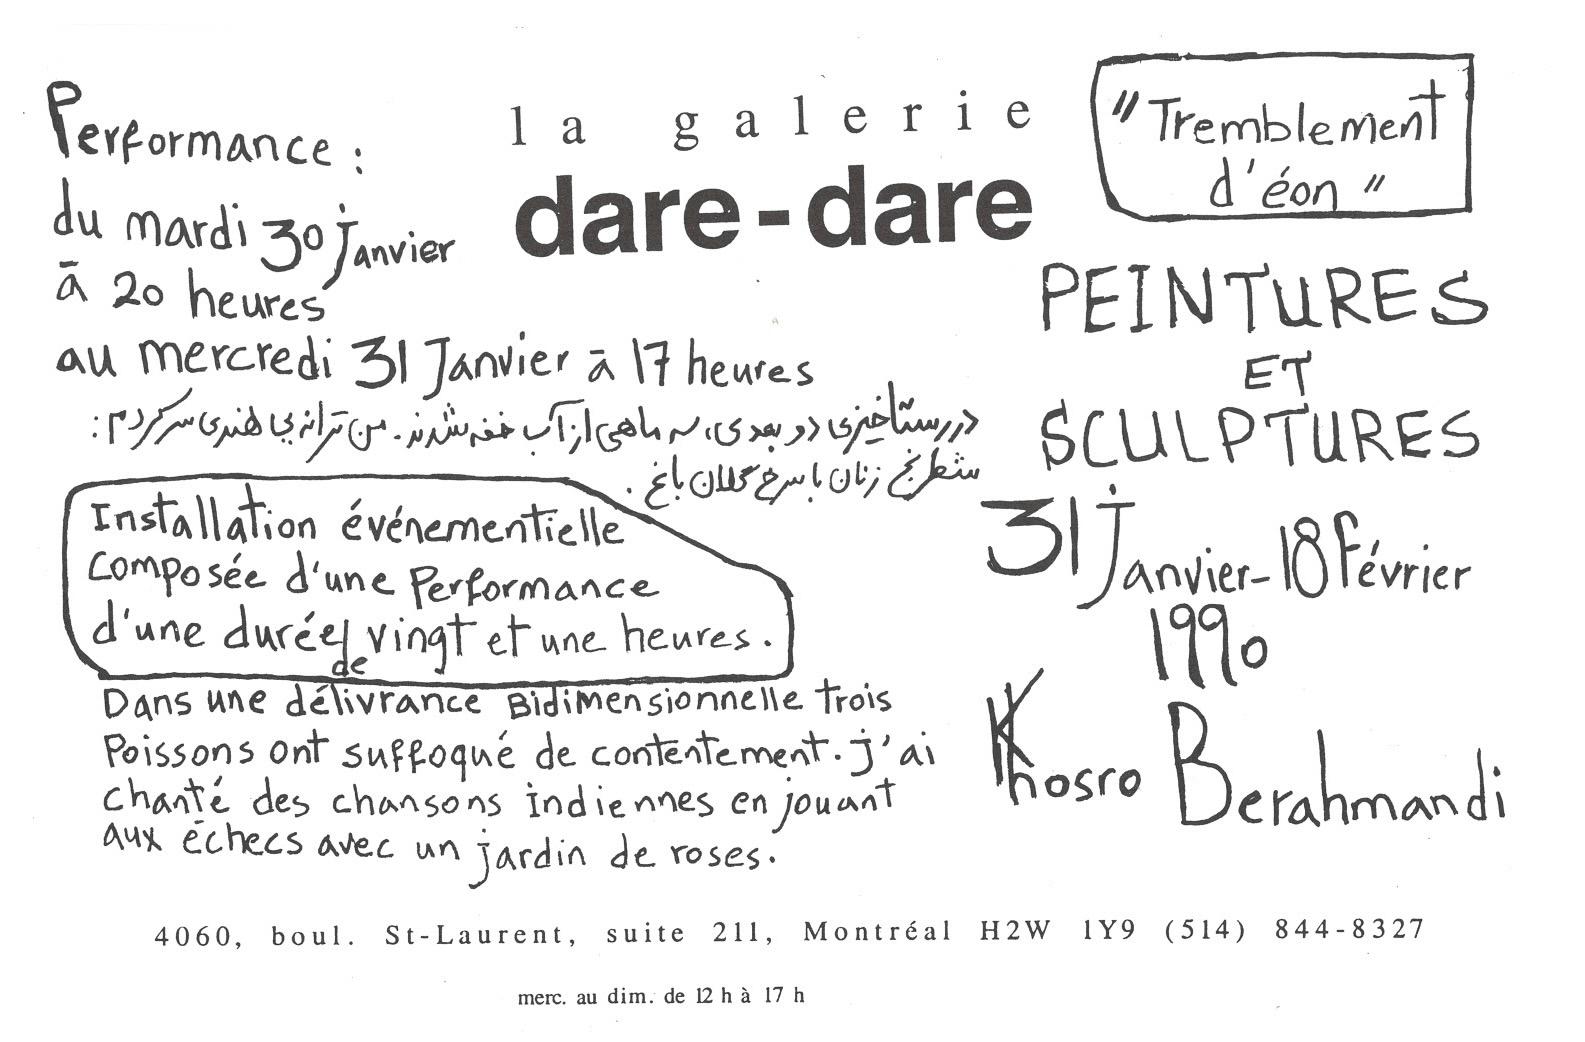 la galerie
dare-dare
"Tremblement
d'éon"
PEINTURES
ET
SCULPTURES
31 Janvier-18 Février
1990
Khosro Berahmandi
Performance :
du mardi 30 janvier
à 20 heures
au mercredi 31 Janvier à 17 heures
در رستاخیزی دو بعدی، سه ماهی از آب خفه شدند. من ترانه‌یی هندی سر کردم:
شطرنج زنان با سرخ گلان باغ.
Installation événementielle
composée d'une Performance
d'une durée de vingt et une heures.
Dans une délivrance Bidimensionnelle trois
Poissons ont suffoqué de contentement. j'ai
chanté des chansons indiennes en jouant
aux échecs avec un jardin de roses.
4060, boul. St-Laurent, suite 211, Montréal H2W 1Y9 (514) 844-8327
merc. au dim. de 12 h à 17 h